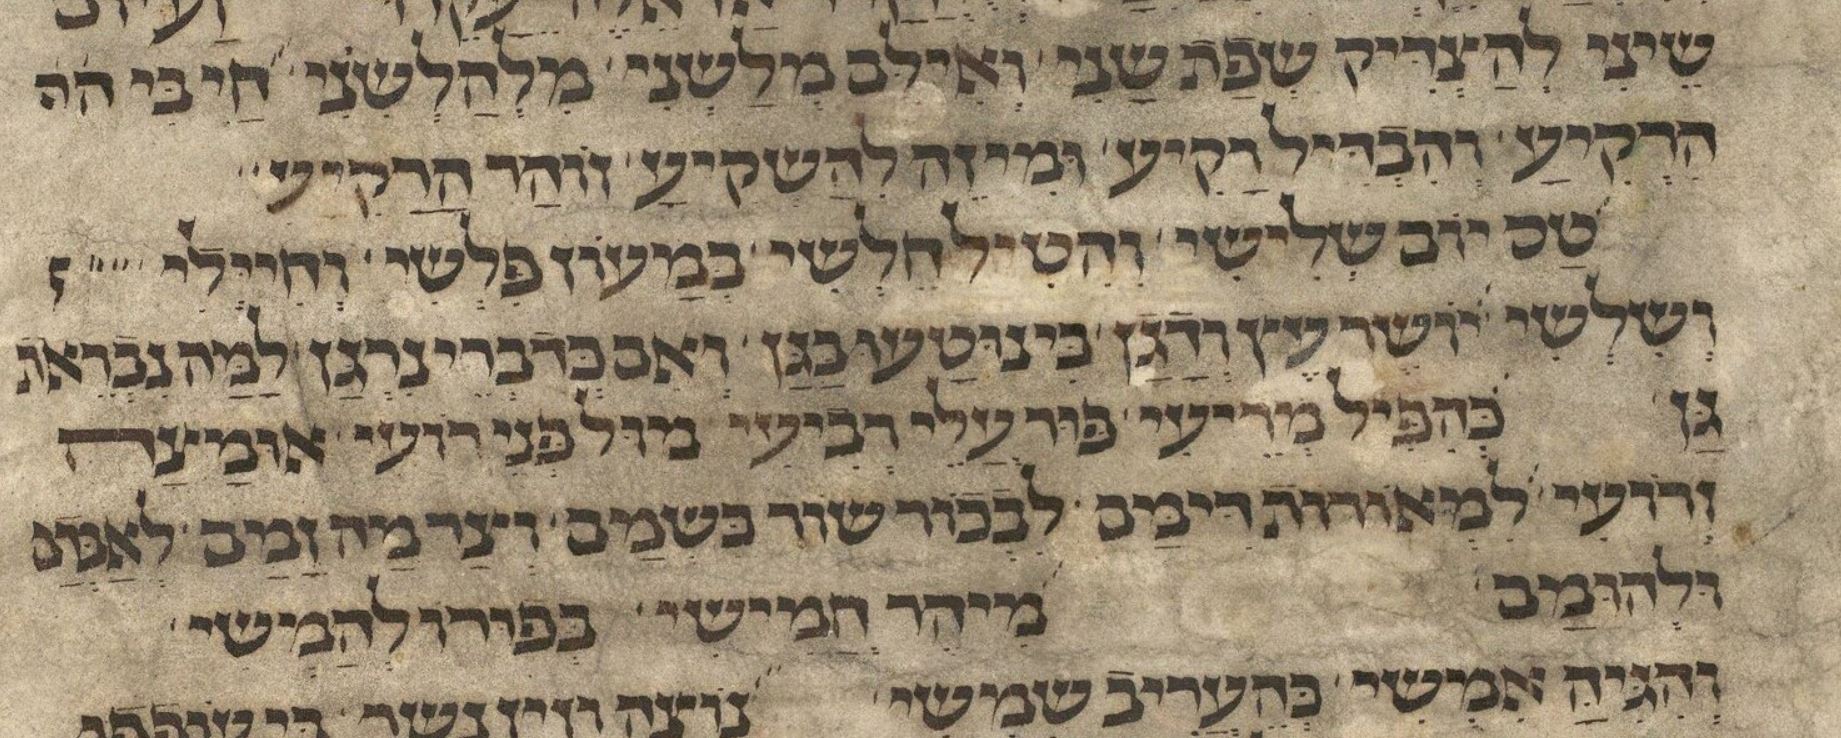 שֶׁיָצִי לְהַצְדִיק שְׂפַת שָנִי וְאֵילֵב מְלַשְנִי מִלְהַלְשִינִי חַי בִי הֹה
הַרְקִיעַ וְהִבְדִיל רָקִיעַ וּמִיזָה לְהַשְקִיעַ זוֹהַר הָרָקִיעַ
טַכ יוֹם שְלִישִי וְהִטִיל חֶלְשִי בְּמָעוֹז פְּלָשִי וְחַיְילִי
וְשִלְשִי יוֹשֶר עֵץ וְדָגָן בִינוּ טַעַו בַגָן וְאִם כְּדִבְרֵי נִרְגָן לָמָה נִבְרֵאת
גַן כְּהִפִיל מְרֵיעִי בּוּר עֲלֵי רְבִיעִי מוּל פְּנֵי רוֹעִי אוּמָצה
וְרוֹעִי לִמְאוֹרוֹת רִימַם לִבְכוֹר שוֹר בְּשִמַם וְצַר מַה זָמַם לְאַבְּדָם
וּלְהוּמַם מִיהַר חֲמִישִי בְּפוּרוֹ לְהַמִשִי
וְהִגִיהַ אִמְשִי בְּהַעֲרִיב שִמְשִי נוֹצָה וּזִיז נֶשֶר